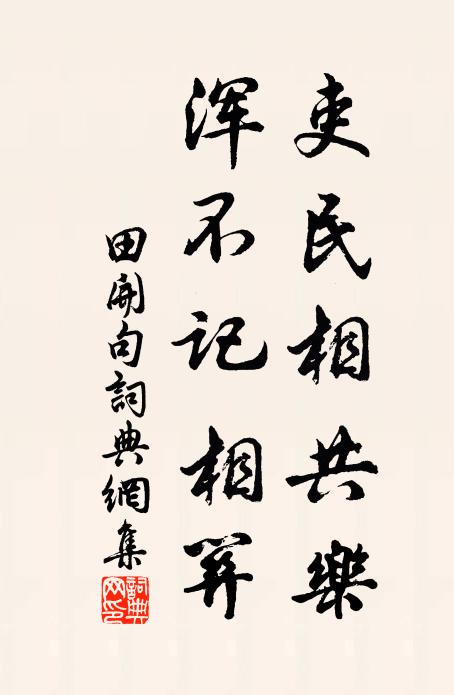 吏民相共樂
渾不記相
田開句詞典網集
詞典
网印